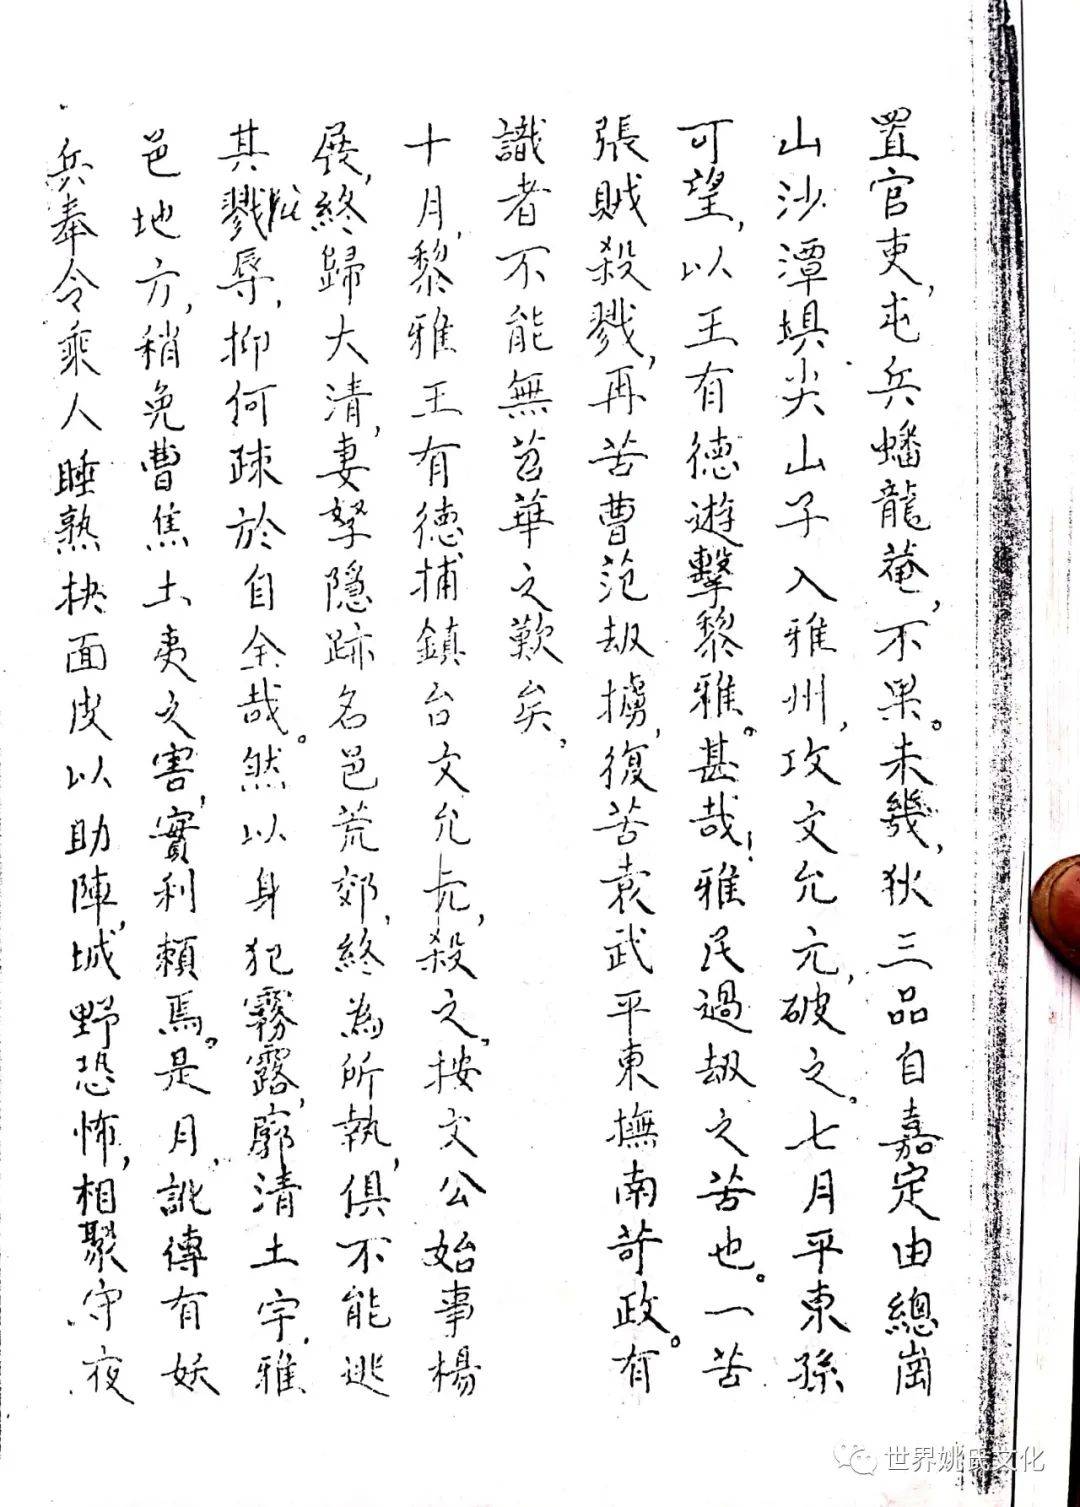 置官吏，屯兵蟠龍菴，不果。未幾，狄三品自嘉定由總崗
山沙潭埧尖山子入雅州，攻文允元，破之。七月平東孫
可望，以王有德遊擊黎雅。甚哉！雅民過劫之苦也。一苦
張賊殺戮，再苦曹范劫擄，復苦袁武平東撫南苛政。有
識者不能無苕華之歎矣，
十月，黎雅王有德捕鎮台文允元，殺之。按文公始事楊
展，終歸大清，妻孥隱跡名邑荒郊，終為所執，俱不能逃
其戮辱，抑何疎於自全哉。然以身犯霧露，廓清土宇，雅
邑地方，稍免曹焦土夷之害，實利賴焉。是月，訛傳有妖
兵奉令乘人睡熟抉面皮以助陣，城野恐怖，相聚守夜
世界姚氏文化